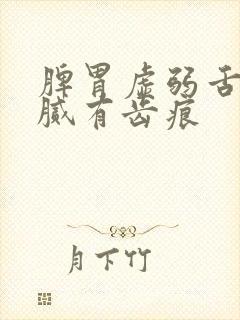 脾胃虚弱舌
腻有齿痕
月下竹